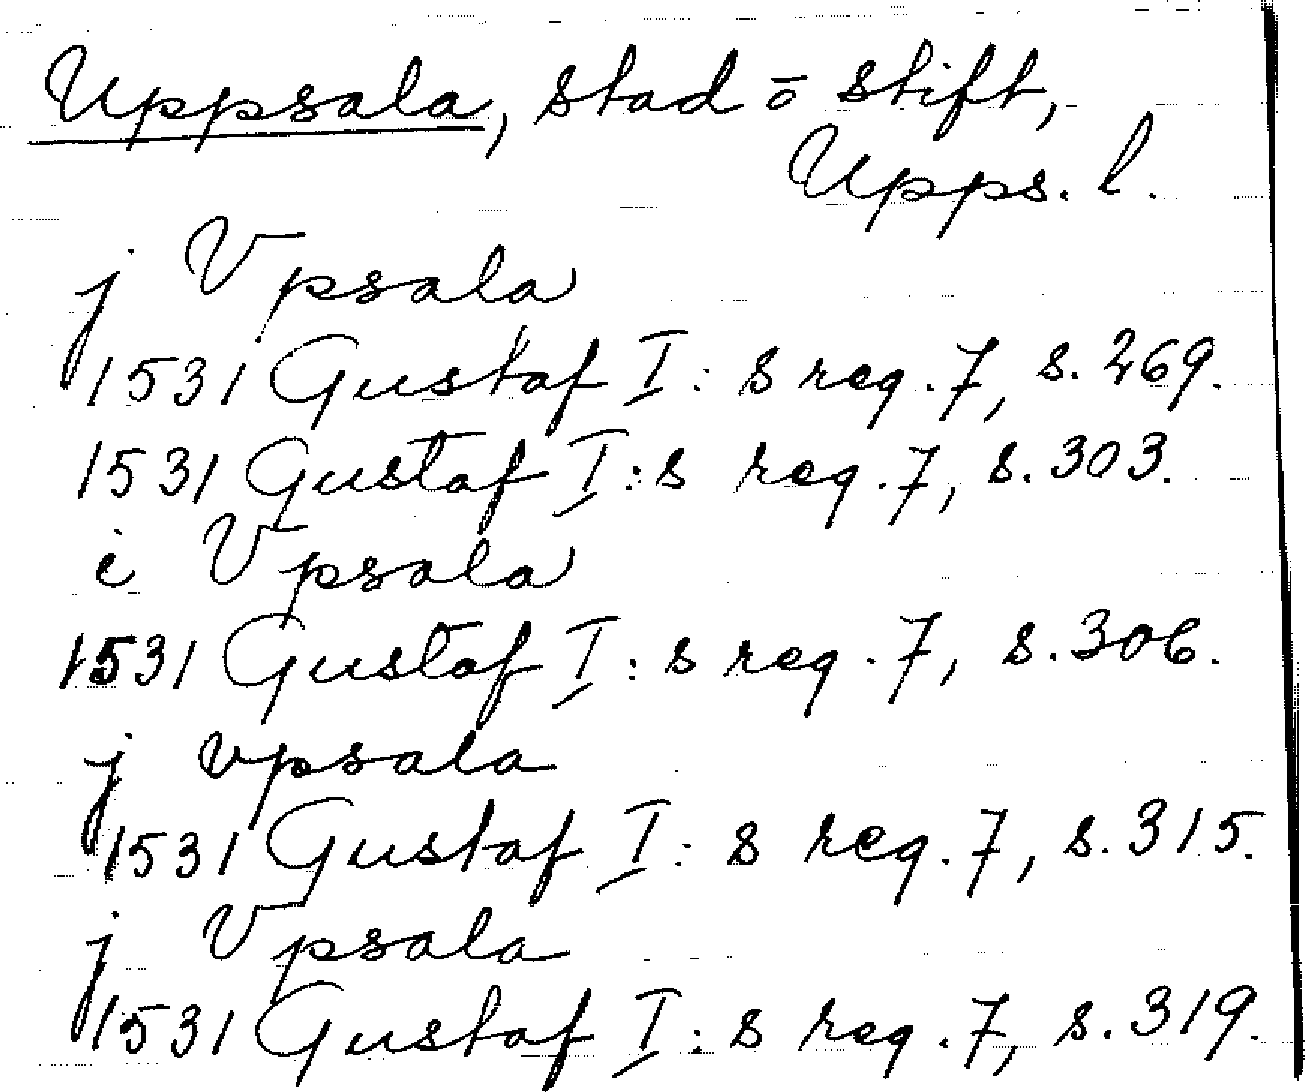 Uppsala, stad ō stift,
Upps. l.
j Vpsala
1531 Gustaf I: s reg. 7, s. 269.
1531 Gustaf I: s reg. 7, s. 303.
i Vpsala
1531 Gustaf I: s reg. 7, s. 306.
j vpsala
1531 Gustaf I: s reg. 7, s. 315.
j Vpsala
1531 Gustaf I: s reg. 7, s. 319.